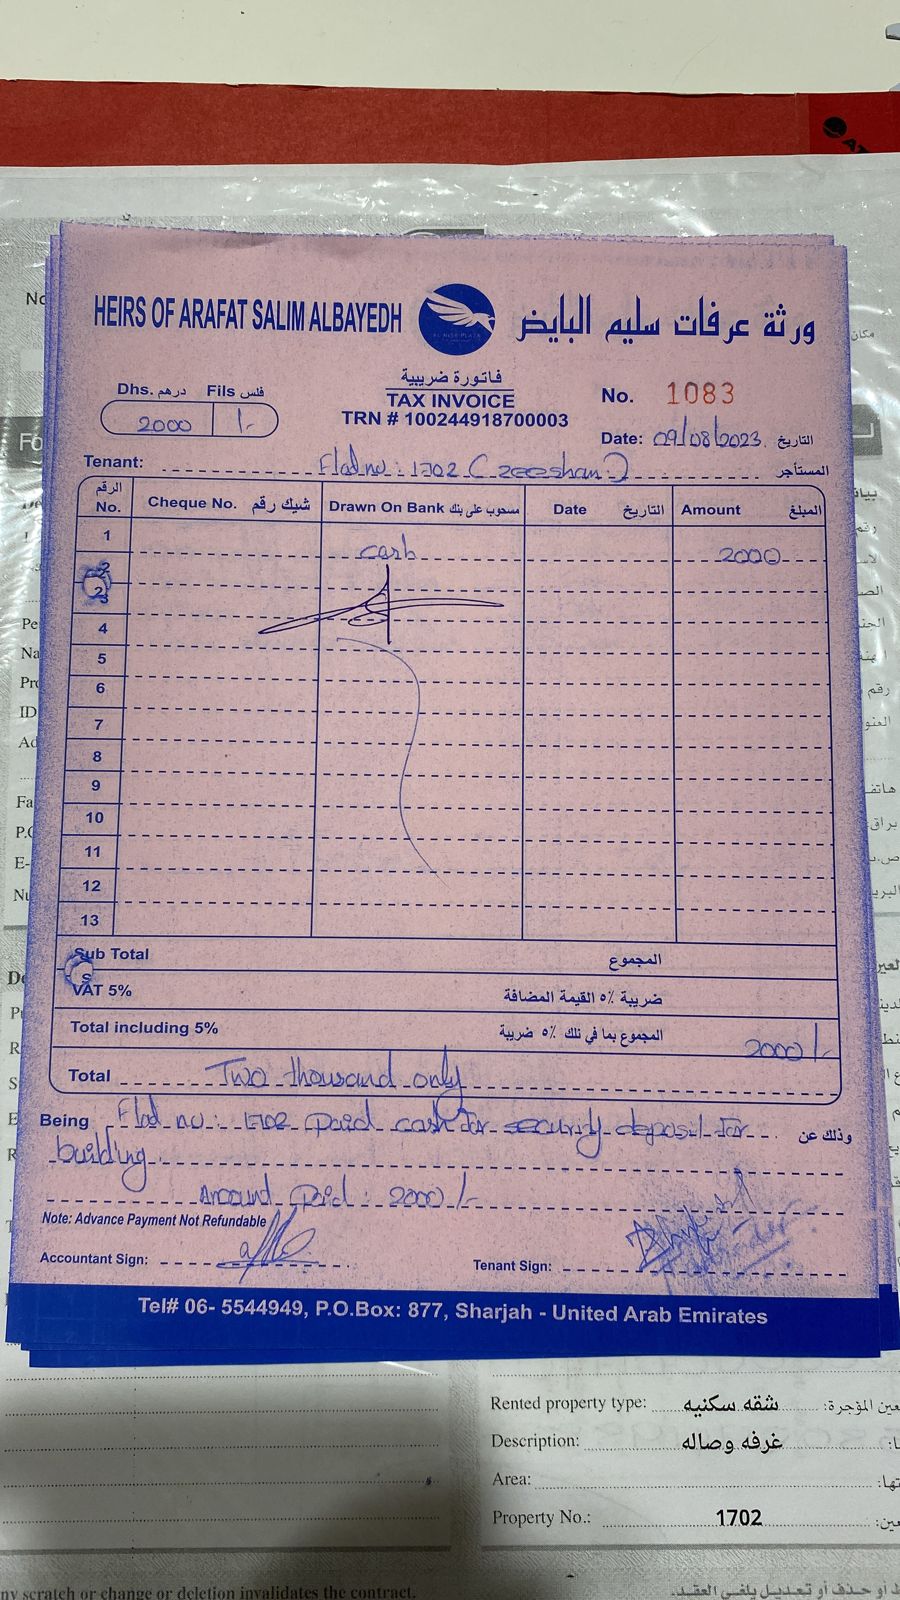 HEIRS OF ARAFAT SALIM ALBAYEDH
ورثة عرفات سليم البايض
AL NISR PLAZA
Dhs. درهم Fils فلس
2000 /-
فاتورة ضريبية
TAX INVOICE
TRN # 100244918700003
No. 1083
Date: 09/08/2023 التاريخ
Tenant: Flad nu: 1702 (zeeshan) المستأجر
الرقم No. Cheque No. شيك رقم Drawn On Bank مسحوب على بنك Date التاريخ Amount المبلغ
1 cash 2000
2
3
4
5
6
7
8
9
10
11
12
13
Sub Total المجموع
VAT 5% ضريبة ٥٪ القيمة المضافة
Total including 5% المجموع بما في ذلك ٥٪ ضريبة 2000/-
Total Two thousand only
Being Flad nu: 1702 paid cash for security deposit for وذلك عن
building
Amound paid: 2000/-
Note: Advance Payment Not Refundable
Accountant Sign:
Tenant Sign:
Tel# 06- 5544949, P.O.Box: 877, Sharjah - United Arab Emirates
Rented property type: شقه سكنيه
Description: غرفه وصاله
Area:
Property No.: 1702
ny scratch or change or deletion invalidates the contract.
أو حذف أو تعديل يلغي العقد.